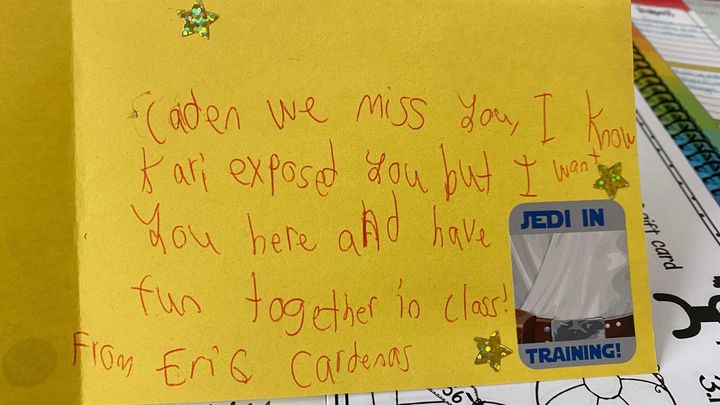 Caden we miss you, I know
Kari exposed you but I want
you here and have
fun together in class!
From Eric Cardenas
JEDI IN
TRAINING!
gift card
56
3.1